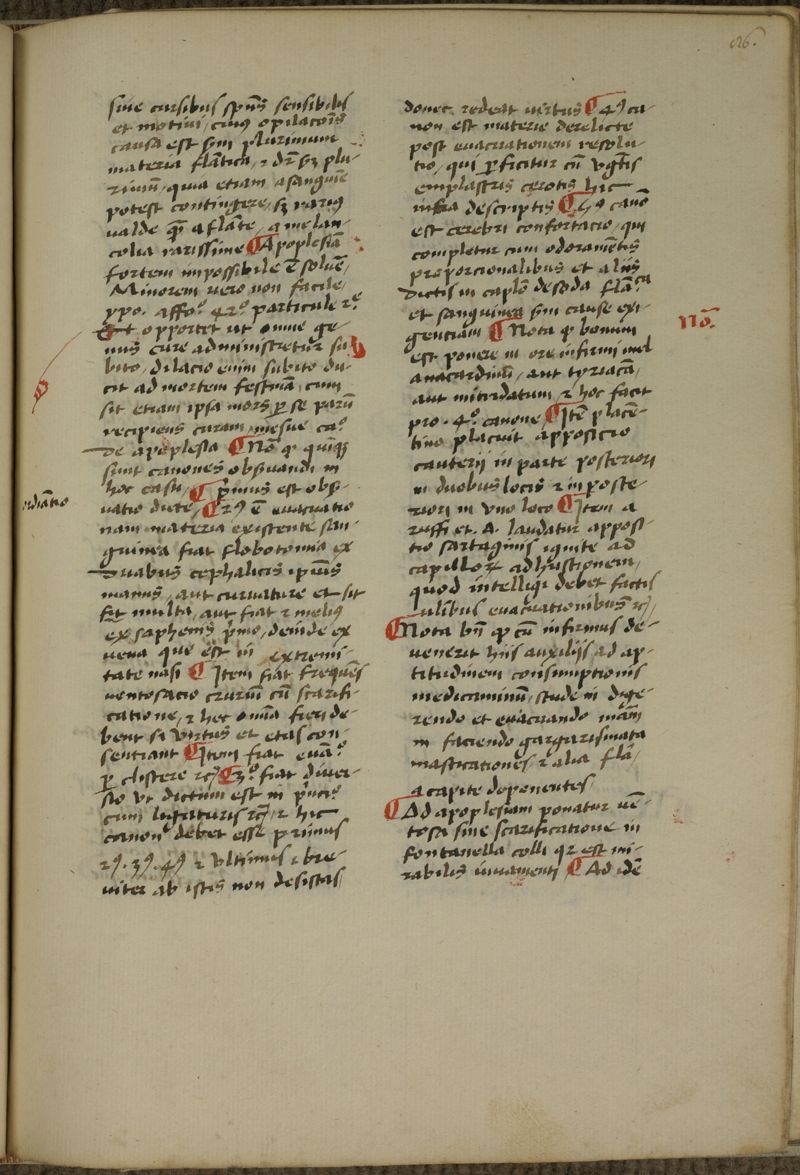 86.
sine cursibus spūs sensibilis
et motivi, cuius opilacōis
causa est sm̄ plurimum
materia flātica, ⁊ dr̄ sm̄ plu-
rimū, quia etiam a sanguīe
potest contingere, sꝫ rariꝰ
valde qͣ a flāte, a melan-
colia rarissime ¶ Apoplesiā
fortem impossibile ē solvē,
Minorem vero non facile,
ypo. affoꝰ. 42ꝰ. particule 2ᵉ
Et opportet ut omne ge-
nus cure administretur su-
bito, dilacio enim subito du-
cit ad mortem festinā, cum
sit etiam ipsa mors ꝑ se parū
recipiens curam, mesue caº
de apoplesia ¶ Nō qͥ quīqꝫ
sunt canones obs̄uandi in
hoc casu, ¶ pͥmus est obs̄-
uatio diete, ¶ 2ꝰ ē evacuatio
nam materia existente san-
guinea fiat flobotomia ex
duabus cephalicis ipsius
manus, aut curvature et sit
multa, aut fiat ⁊ meliꝰ
ex saphenis pͥmo, deinde ex
vena que est in extremi-
tate nasi ¶ Item fiat frequēs
ventosacio crurium cū scarifi-
catione, ⁊ hec omīa fieri de-
bent si virtus et etas con-
sentiant ¶ Item fiat evaº
ꝑ clistere ⁊c̄ ¶ 3º. fiat diver-
sio ut dictum est in pͥncº
cum ligaturis ⁊c̄, ⁊ hic
canonº debet esse primus
2ꝰ. 3ꝰ. 4ꝰ ⁊ ultimus ⁊ bre-
viter ab istis non desistas,
donec redeat virtus ¶ 4ꝰ ca-
non est materie derelicte
post evacuationem resolu-
tio, qui ꝑficitur cū ūgtis
emplastris cerotis hic
infra descriptis ¶ 5ꝰ canō
est cerebri confortacio, qui
completur cum odoramētis
proporcionalibus et aliis
dictis in caplō de soda flātᶜᵃ
et sanguinea sm̄ cause exi-
genciam ¶ Nota qͥ bonum
est ponere in ore infirmi mel
anacardinū, aut tyriacā,
aut mitridatum, ⁊ hoc facit
pro. 4º. canone, ¶ Itē placē-
tino placuit apposicio
cauterij in parte posteriori
in duobus locis ⁊ in poste-
riori in uno loco ¶ Item a
ruffi et. A. laudatur apposi-
tio sartaginis ignite ad
capilloꝝ adhustionem,
quod intelligi debet factis
ulībus evacuationibus ⁊c̄,
¶ Nota bn̄ qͥ cū infirmus de-
venerit hiis auxilijs ad ap-
titudinem consumptionis
medicaminum, stude in dige-
rendo et evacuando mām
in faciendo gargarismata
masticationes ⁊ alia flā,
a capite deponentes,
¶ Ad apoplesiam ponatur vē-
tosa sine scarificatione in
fontanella colli qꝛ est mi-
rabilis iuvamenti ¶ Ad idē
Nō.